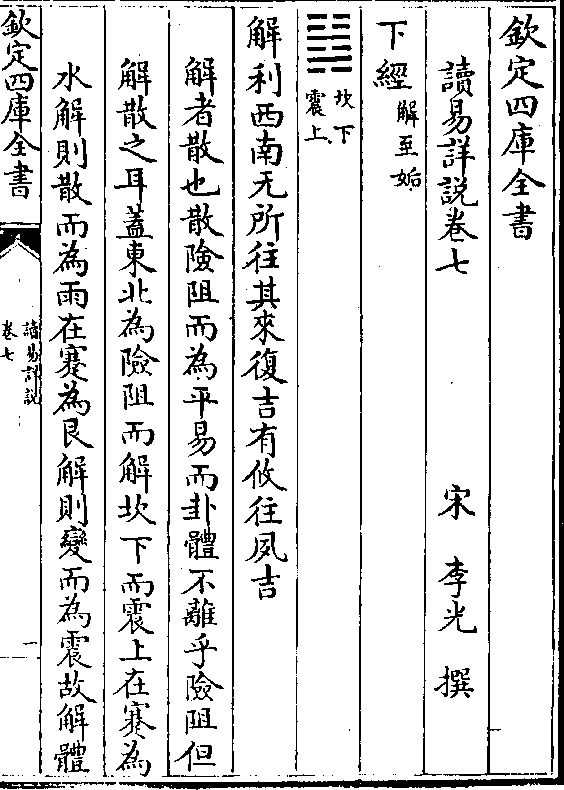 欽定四庫全書
讀易詳說卷七
宋 李光 撰
下經 解至姤
䷧ 坎下 震上
解利西南无所往其來復吉有攸往夙吉
解者散也散險阻而為平易而卦體不離乎險阻但
解散之耳蓋東北為險阻而解坎下而震上在蹇為
水解則散而為雨在蹇為艮解則變而為震故解體
欽定四庫全書
讀易詳說
卷七
一